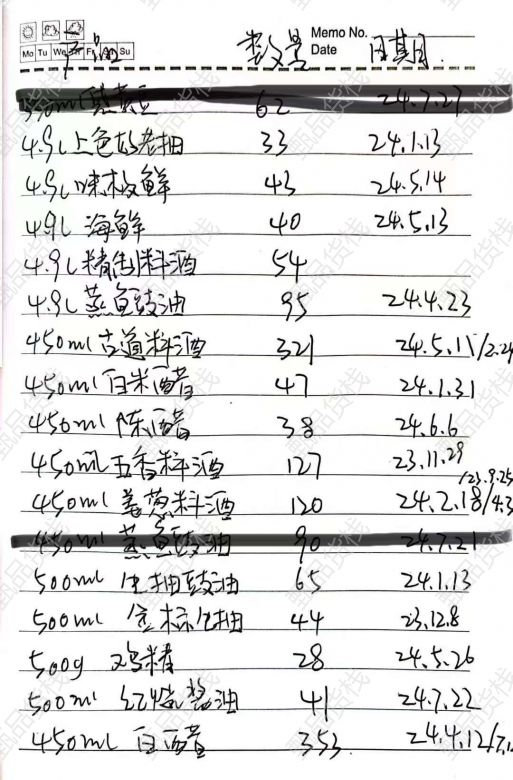 Memo No.
Mo Tu We Th Fr Sa Su Date
产品 数量 日期
550ml蒸 豆 62 24.7.27
4.9L上色好老抽 33 24.1.13
4.9L味极鲜 43 24.5.14
4.9L 海鲜 40 24.5.13
4.9L精制料酒 54
4.9L蒸鱼豉油 95 24.4.23
450ml古道料酒 321 24.5.11/2.29
450ml白米醋 47 24.1.31
450ml 陈醋 38 24.6.6
450ml五香料酒 127 23.11.29
/23.9.25
450ml 姜葱料酒 120 24.2.18/4.3
450ml 蒸鱼豉油 90 24.7.21
500ml 生抽豉油 65 24.1.13
500ml 金标生抽 44 23.12.8
500g 鸡精 28 24.5.26
500ml 红烧酱油 41 24.7.22
450ml 白醋 353 24.4.12/7.1
甄品货栈